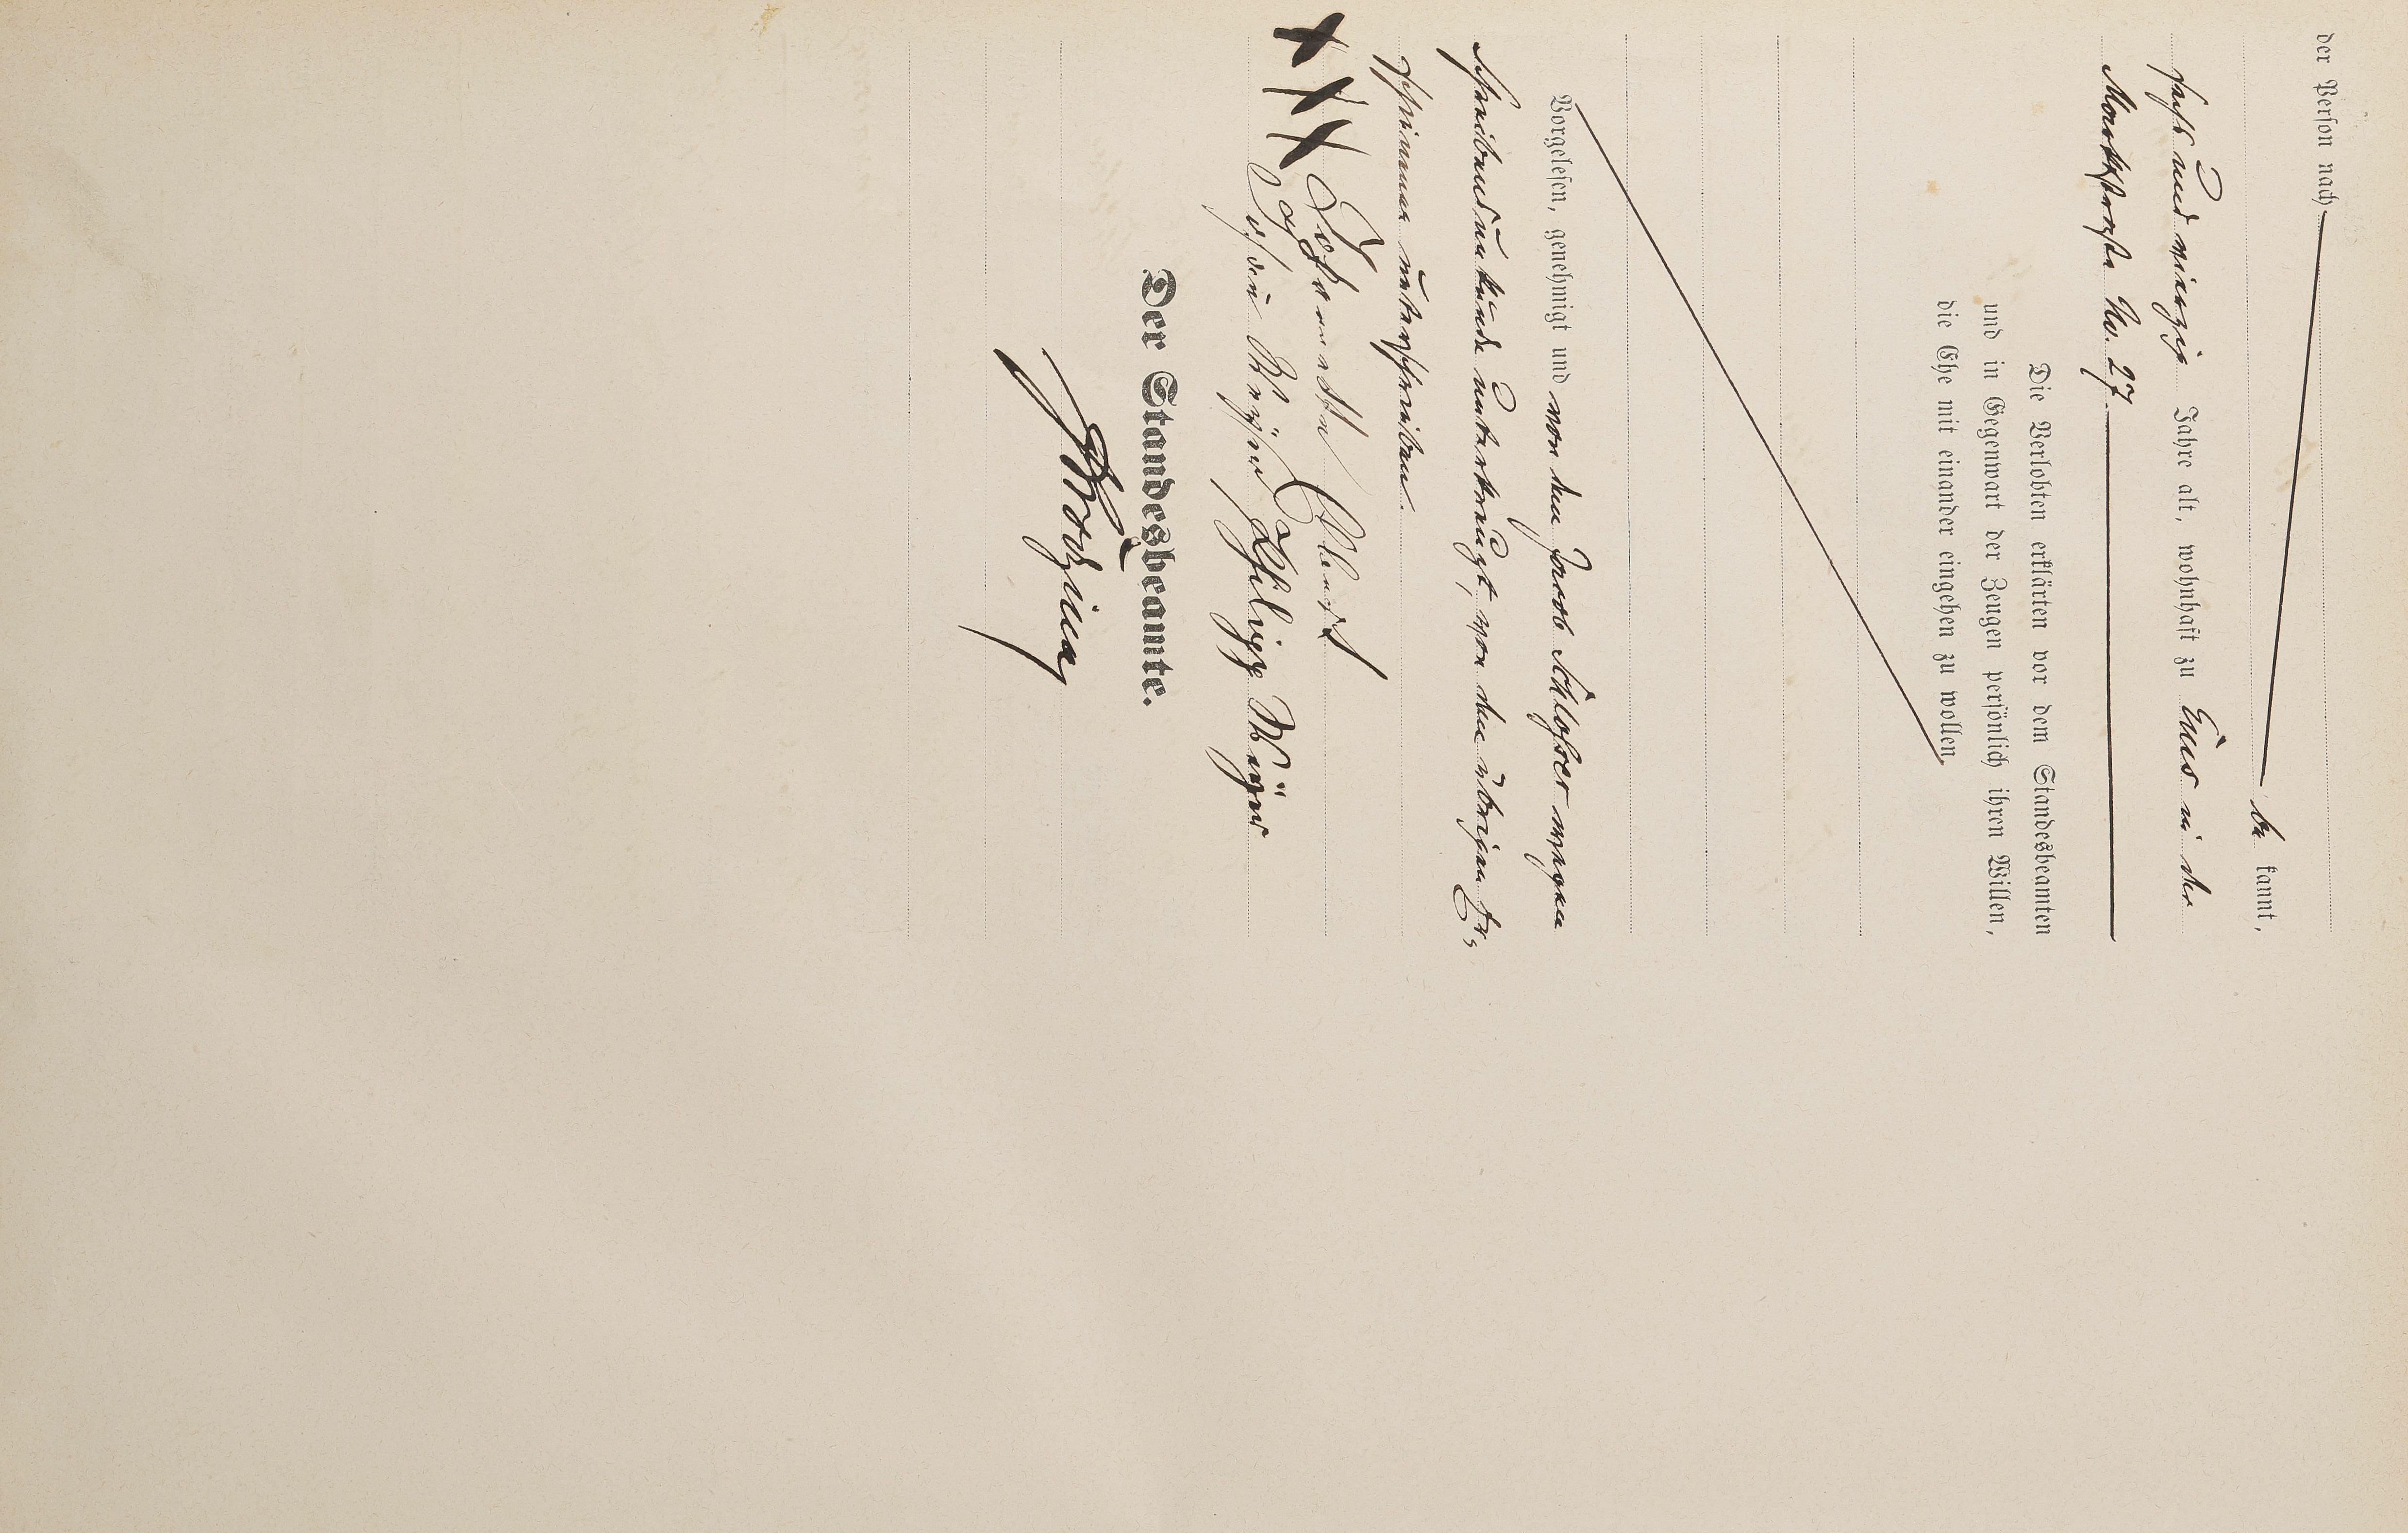 der Person nach
be kannt,
sechs und vierzig Jahre alt, wohnhaft zu Ems in der
Marktstraße No. 27.
Die Verlobten erklärten vor dem Standesbeamten
und in Gegenwart der Zeugen persönlich ihren Willen,
die Ehe mit einander eingehen zu wollen
Vorgelesen, genehmigt und von dem Jacob Schlosser wegen
Schreibensunkunde unterkreuzt, von den übrigen Er,
schienenen unterschrieben.
XXX
Johannette
Philipp
Der Standesbeamte.